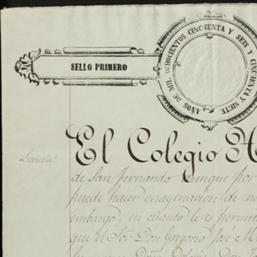 SELLO PRIMERO
AÑOS DE MIL OCHOCIENTOS CINCUENTA Y SEIS
CINCUENTA Y SIETE
El Colegio
Licencia
de San fernando aunque por
puede hacer enagenacion de
embargo en cuanto le es
que el Sor. Don Gregorio José M